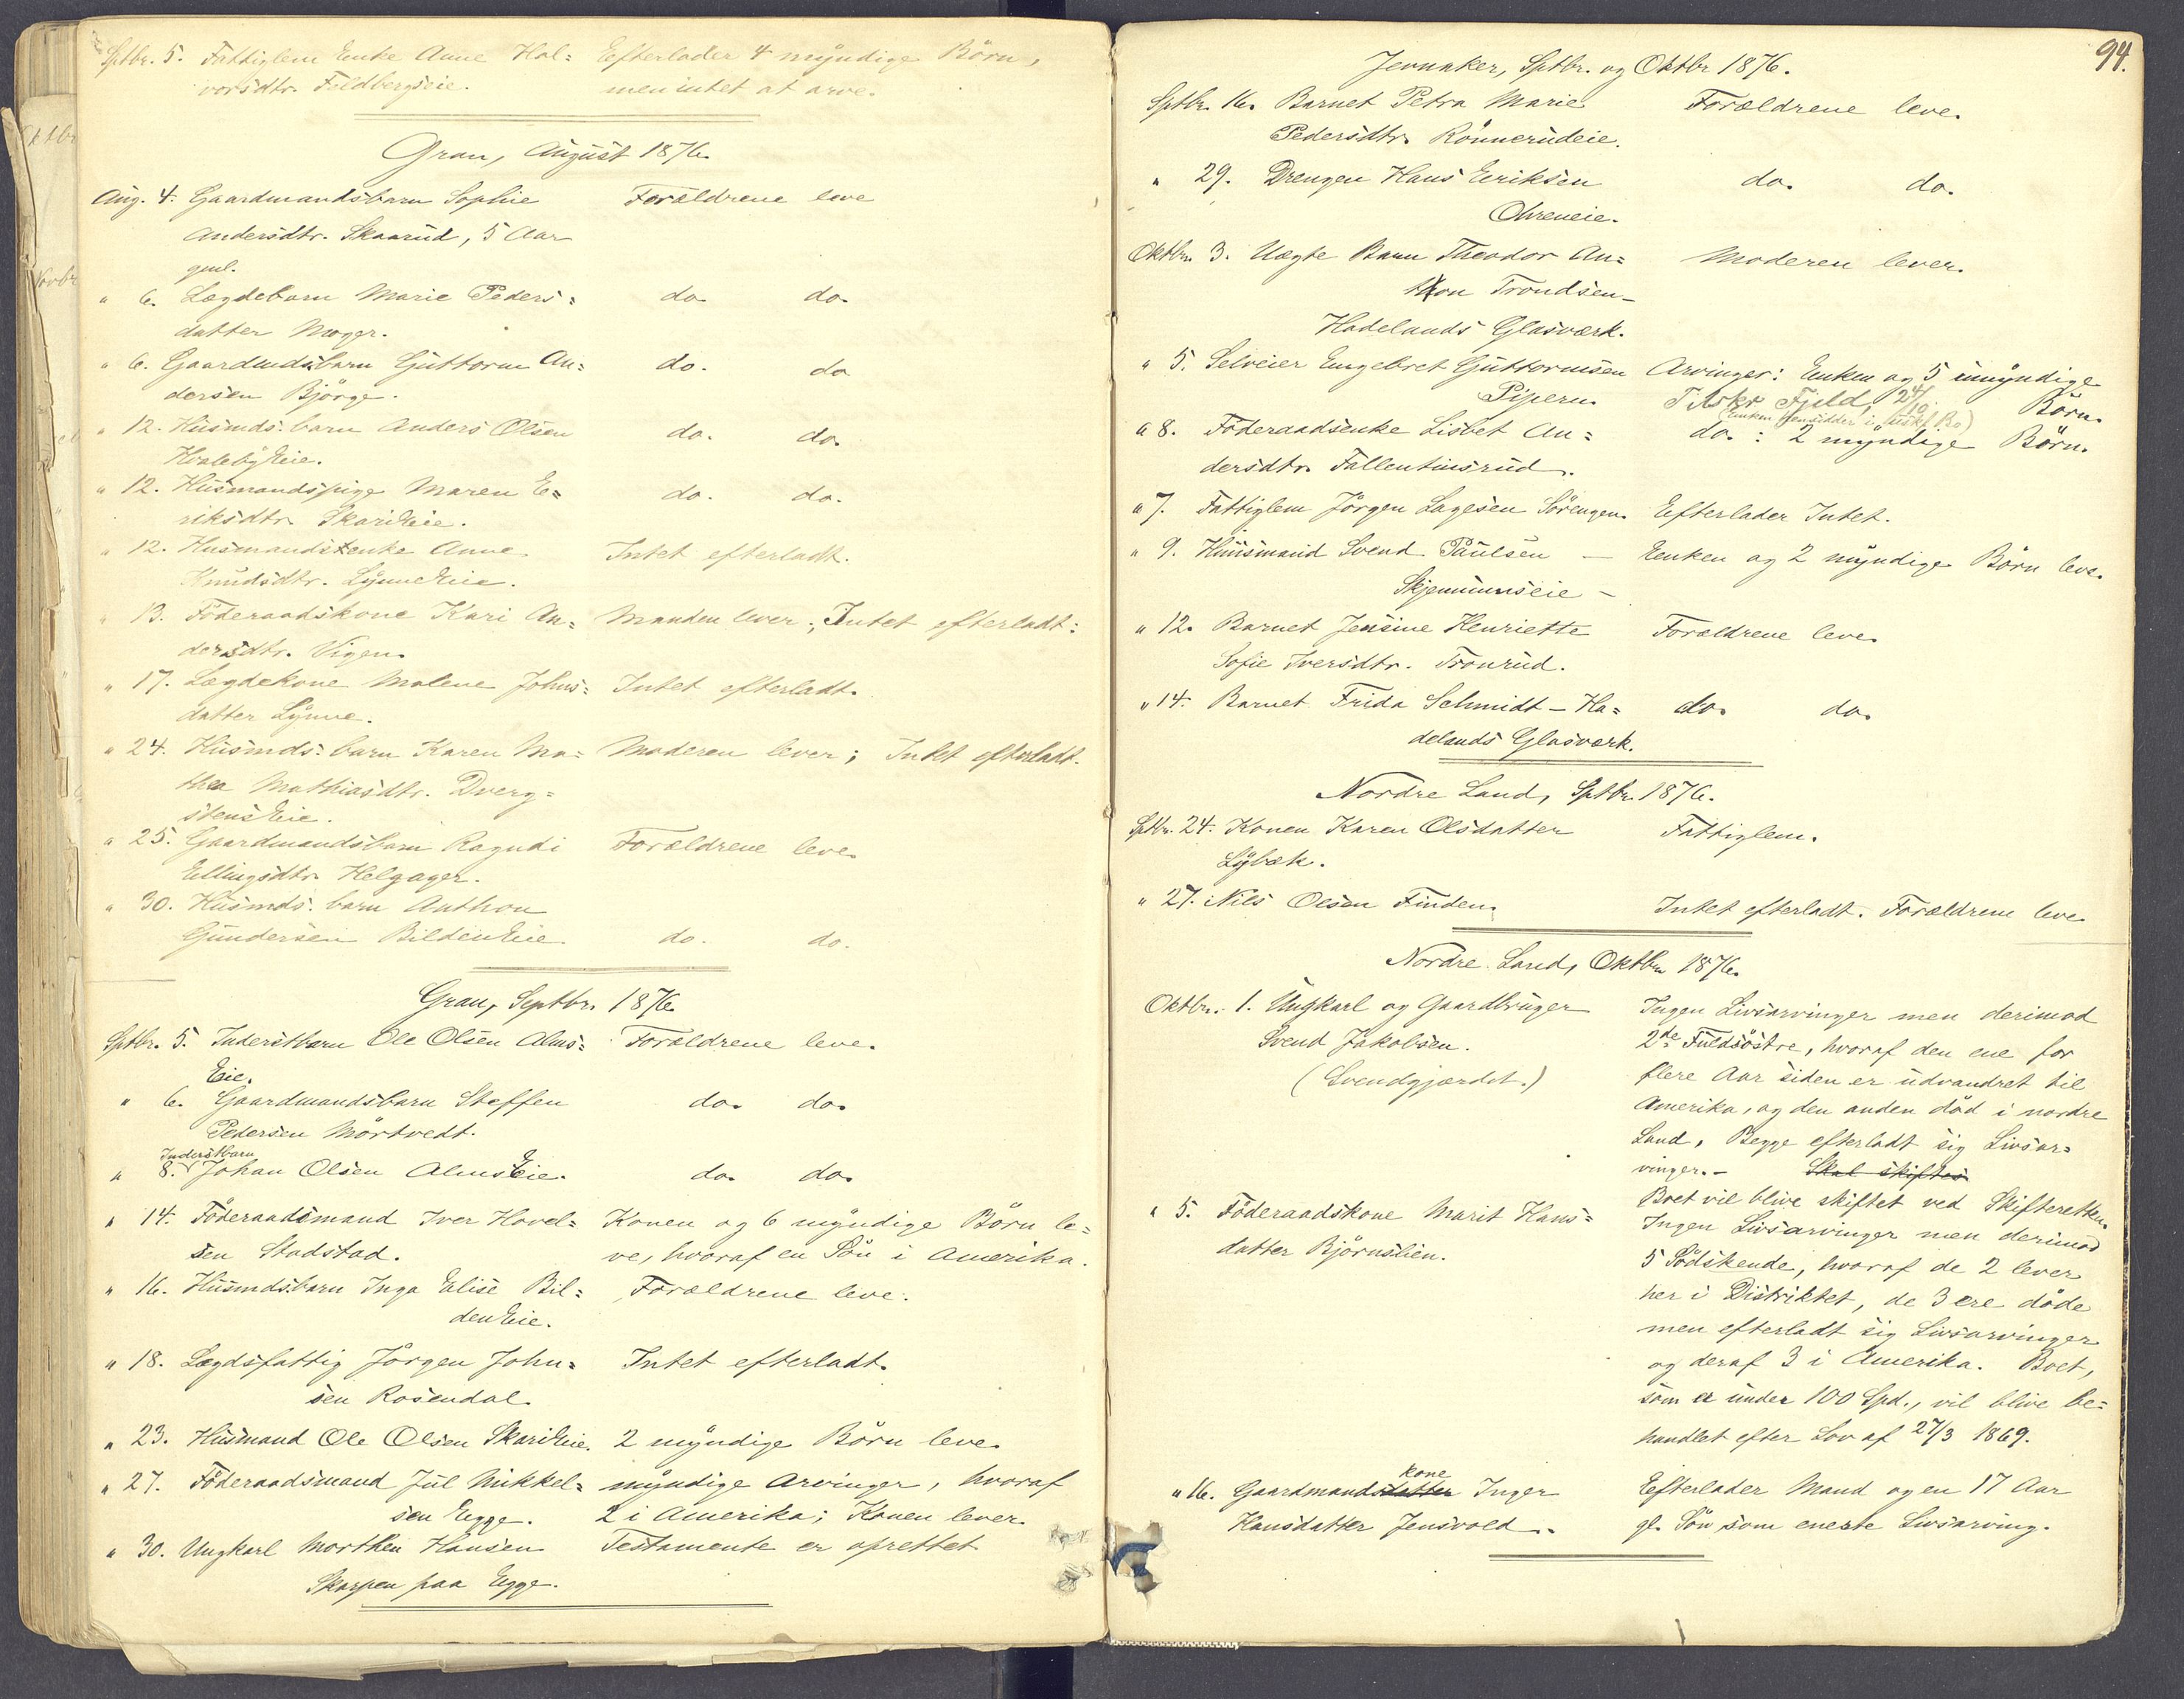 Sptbr. 5. Fattiglem Enke Anne Hal= Efterlader 4 myndige Börn,
vorsdtr. Feldbergseie. men intet at arve.
Gran, August 1876.
Aug. 4. Gaardmandsbarn Sophie Forældrene leve
Andersdtr. Skaarud, 5 Aar
gml.
" 6. Lægdebarn Marie Peders= do do.
datter Moger.
" 6. Gaardmdsbarn Guttorm An= do. do
dersen Björge.
" 12. Husmds. barn Anders Olsen do. do.
HvalebyEie.
" 12. Husmandspige Maren E= do. do.
riksdtr. SkariEie.
" 12. Husmandsenke Anne Intet efterladt.
Knudsdtr. LynneEie.
" 13. Föderaadskone Kari An= Manden lever; Intet efterladt:
dersdtr. Vigen.
" 17. Lægdekone Malene Johns= Intet efterladt.
datter Lynne.
" 24. Husmds: barn Karen Ma= Moderen lever; Intet efterladt.
thea Mathiasdtr. Dverg=
stensEie.
" 25. Gaardmandsbarn Ragndi Forældrene leve.
Ellingsdtr. Helgager.
" 30. Husmds. barn Anthon
Gundersen BildenEie do. do.
Gran, Septbr. 1876
Sptbr. 5. Inderstbarn Ole Olsen Alms= Forældrene leve.
Eie.
" 6. Gaardmandsbarn Steffen do. do.
Pedersen Mörtvedt.
Inderstbarn
" 8. Johan Olsen AlmsEie. do. do.
" 14. Föderaadsmand Iver Hovel= Konen og 6 myndige Börn le=
sen Stadstad. ve, hvoraf en Sön i Amerika.
" 16. Husmdsbarn Inga Elise Bil= Forældrene leve.
denEie.
" 18. Lægdsfattig Jörgen John= Intet efterladt.
sen Rosendal.
" 23. Husmand Ole Olsen SkariEie. 2 myndige Börn leve.
" 27. Föderaadsmand Jul Mikkel= myndige Arvinger, hvoraf
sen Egge. 2 i Amerika; Konen lever.
" 30. Ungkarl Morthen Hansen Testamente er oprettet
Skarpen paa Egge.
94.
Jevnaker, Sptbr. og Oktbr 1876.
Sptbr. 16. Barnet Petra Marie Forældrene leve.
Pedersdtr. Rönnerudeie.
" 29. Drengen Hans Eriksen do. do.
Ohreneie.
Oktbr. 3. Uægte Barn Theodor An= Moderen lever.
thon Trondsen-
Hadelands Glasværk.
" 5. Selveier Engebret Guttormsen Arvinger: Enken og 5 umyndige
Pipern. Tilskr Fjeld, 24/10. Börn.
(Enken hensidder i uskf. Bo)
" 8. Föderaadsenke Lisbet An= do.: 2 myndige Börn.
dersdtr. Fallentinsrud.
" 7. Fattiglem Jörgen Lagesen Sörengen. Efterlader Intet.
" 9. Huusmand Svend Paulsen — Enken og 2 myndige Börn leve.
Skjennumseie -
" 12. Barnet Jensine Henriette Forældrene leve.
Sofie Iversdtr. Tronrud.
" 14. Barnet Frida Schmidt - Ha= do. do.
delands Glasværk.
Nordre Land, Sptbr. 1876.
Sptbr. 24. Konen Karen Olsdatter Fattiglem.
Lybæk.
" 27. Nils Olsen Finden. Intet efterladt. Forældrene leve.
Nordre Land, Oktbr. 1876.
Oktbr. 1. Ungkarl og Gaardbruger Ingen Livsarvinger men derimod
Svend Jakobsen. 2de Fuldsöstre, hvoraf den ene for
(Svendgjærdet.) flere Aar siden er udvandret til
Amerika, og den anden död i nordre
Land. Begge efterladt sig Livsar=
vinger.- Skal skiftes
Boet vil blive skiftet ved Skifteretten.
" 5. Föderaadskone Marit Hans= Ingen Livsarvinger men derimod
datter Björnslien. 5 Södskende, hvoraf de 2 lever
her i Distriktet, de 3 ere döde
men efterladt sig Livsarvinger
og deraf 3 i Amerika. Boet,
som er under 100 Spd., vil blive be=
handlet efter Lov af 27/3 1869.
kone
" 16. Gaardmandsdatter Inger Efterlader Mand og en 17 Aar
Hansdatter Jensvold. gl. Sön som eneste Livsarving.